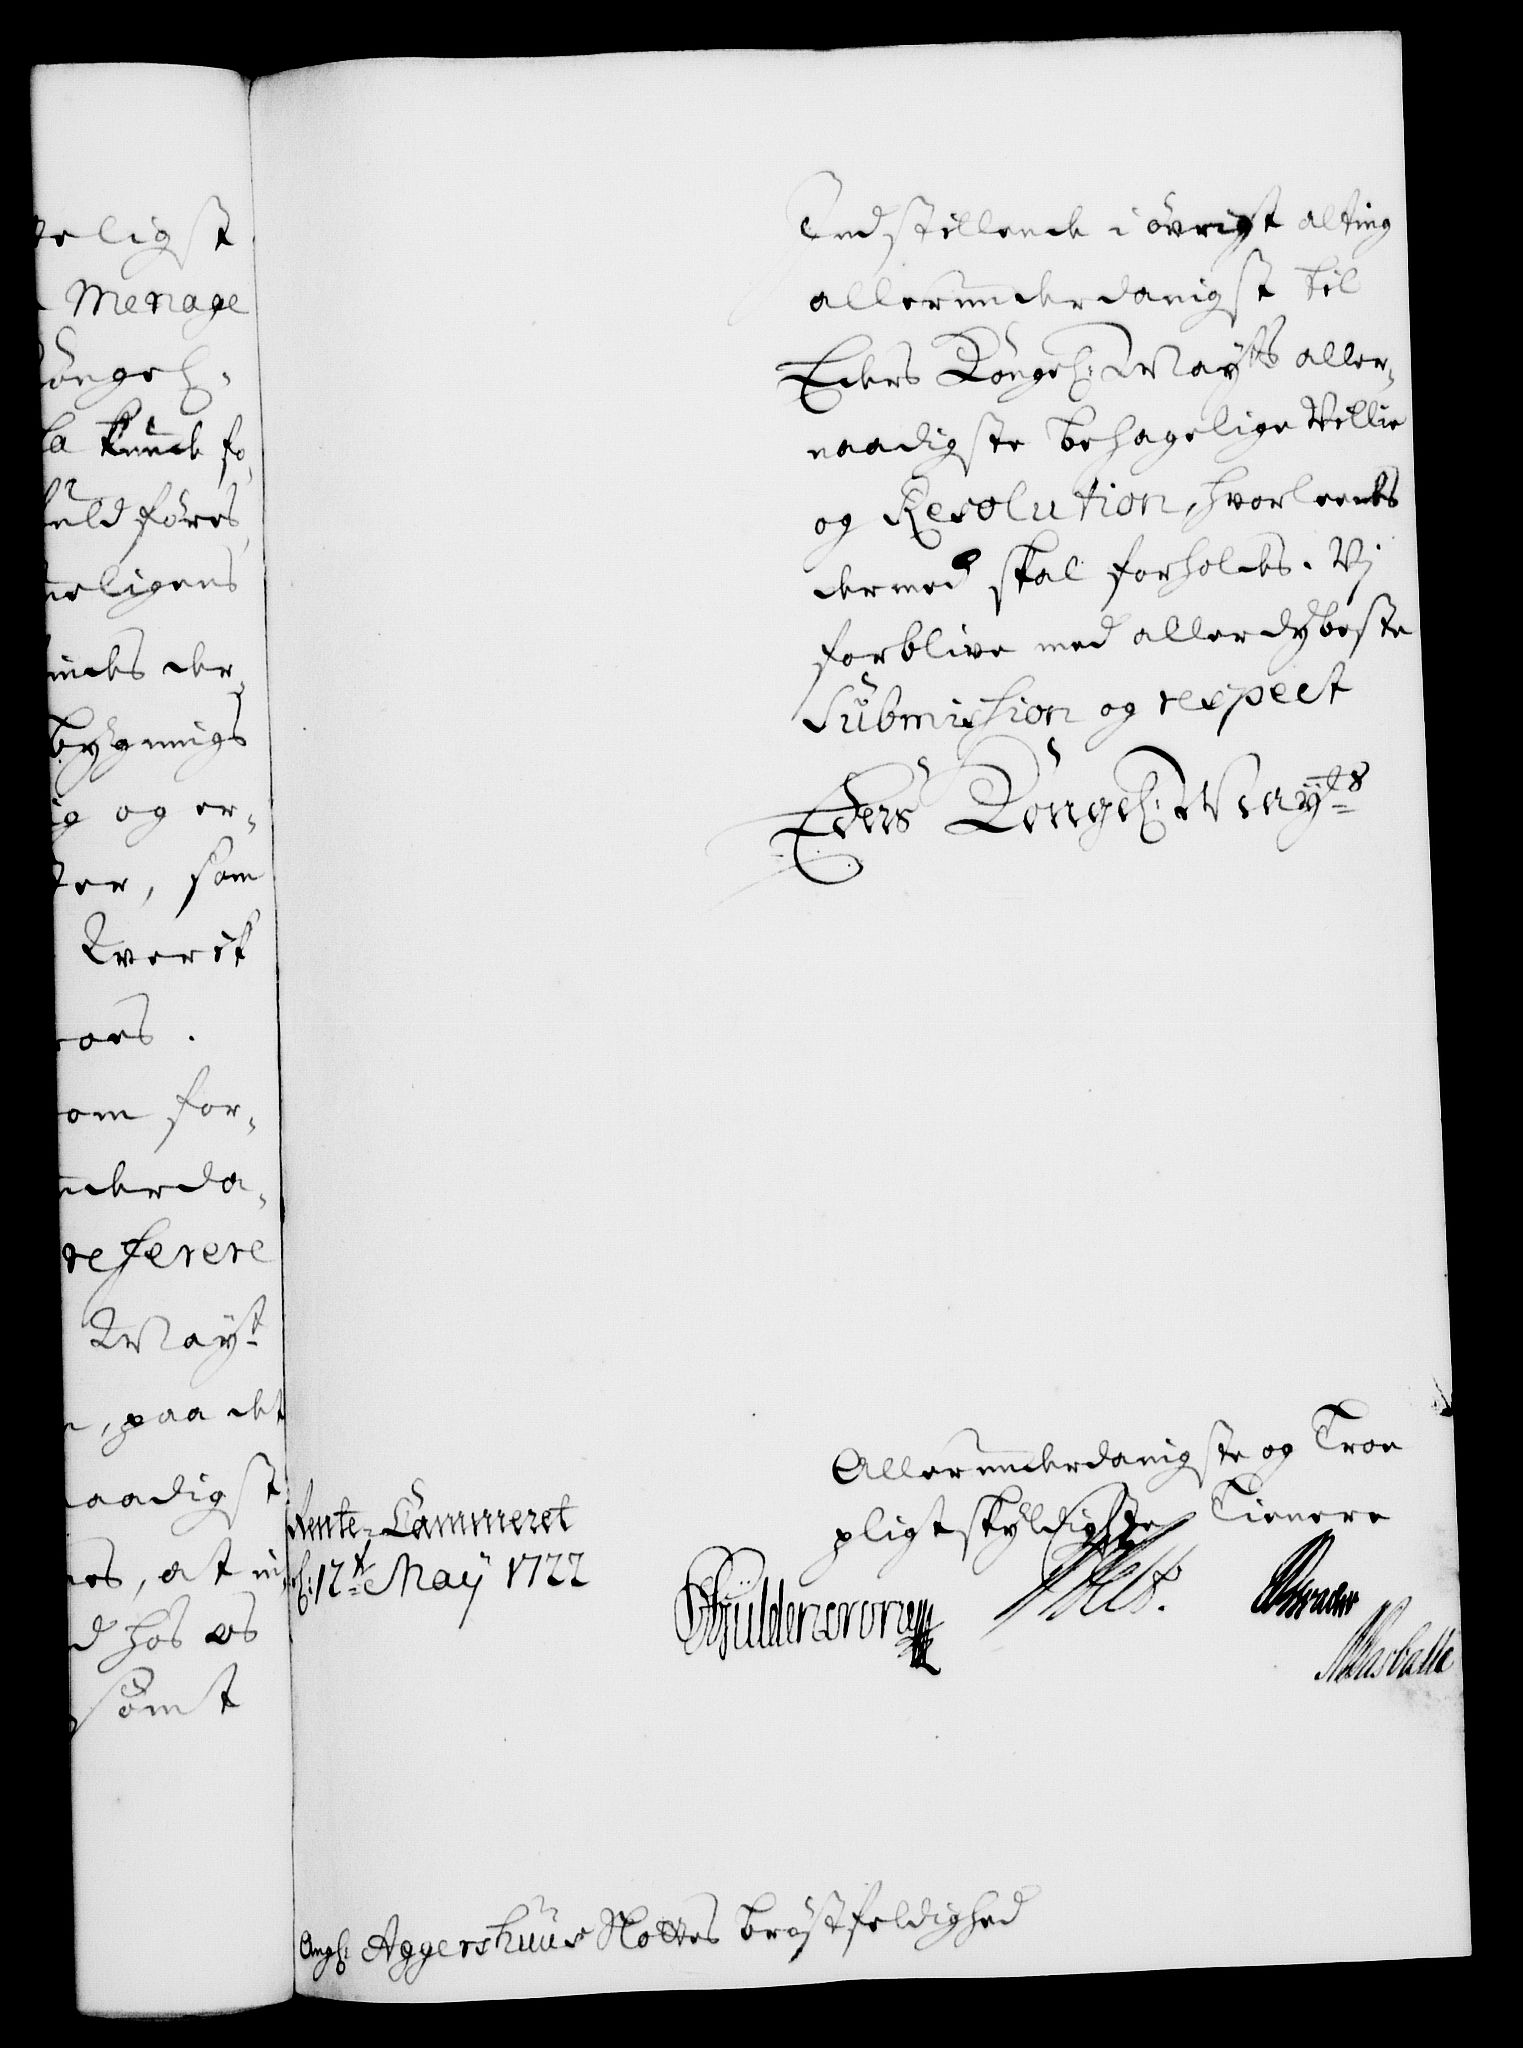 eligst
Menage
Kongel:
la kunde fo,
uld føres,
neligens
indes der,
bygnings
ig og er,
ter, som
Qverst
om for,
underda,
referere
Mayt
, paa det
naadigst
es, at vi
d hos os
sømt
Indstillende i øvrigt alting
allerunderdanigst til
Eders Kongel: Mayts aller,
naadigste behagelige Villie
og Resolution, hvorleedes
dermed skal forholdes. Vj
forblive med allerdybeste
Submission og respect
Eders Kongel: Mayts
Allerunderdanigste og Troe
pligtskyldigste Tienere
Rente-Cammeret
d: 12t May 1722
Gyldencrone
Angl: Aggershuus Slottes brøstfeldighed